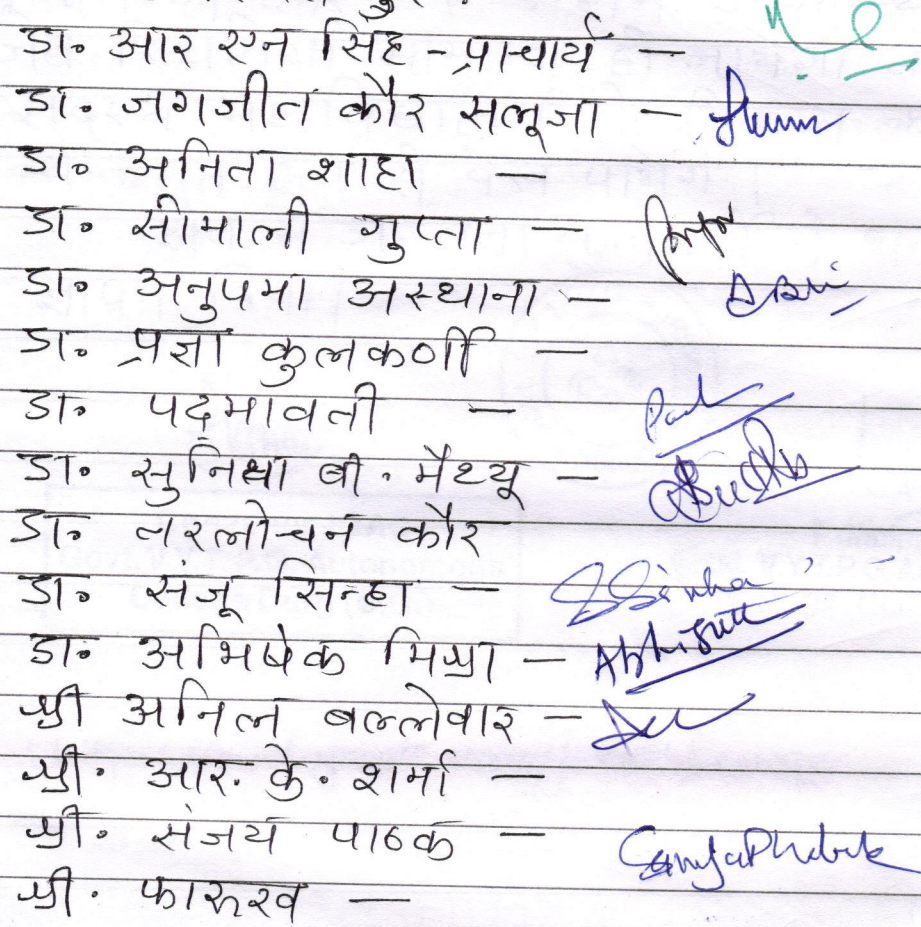 डा. आर एन सिंह - प्राचार्य -
डा. जगजीत कौर सलूजा -
डा. अनिता शाहा -
डा. सोमाली गुप्ता -
डा. अनुपमा अस्थाना -
डा. प्रज्ञा कुलकर्णी -
डा. पद्मावती -
डा. सुनिथा बी. मैथ्यू -
डा. तरलोचन कौर
डा. संजू सिन्हा - SSinha
डा. अभिषेक मिश्रा - Abhishek
श्री अनिल बल्लेवार -
श्री. आर. के. शर्मा -
श्री. संजय पाठक - Sanjay Phatak
श्री. फारूख -